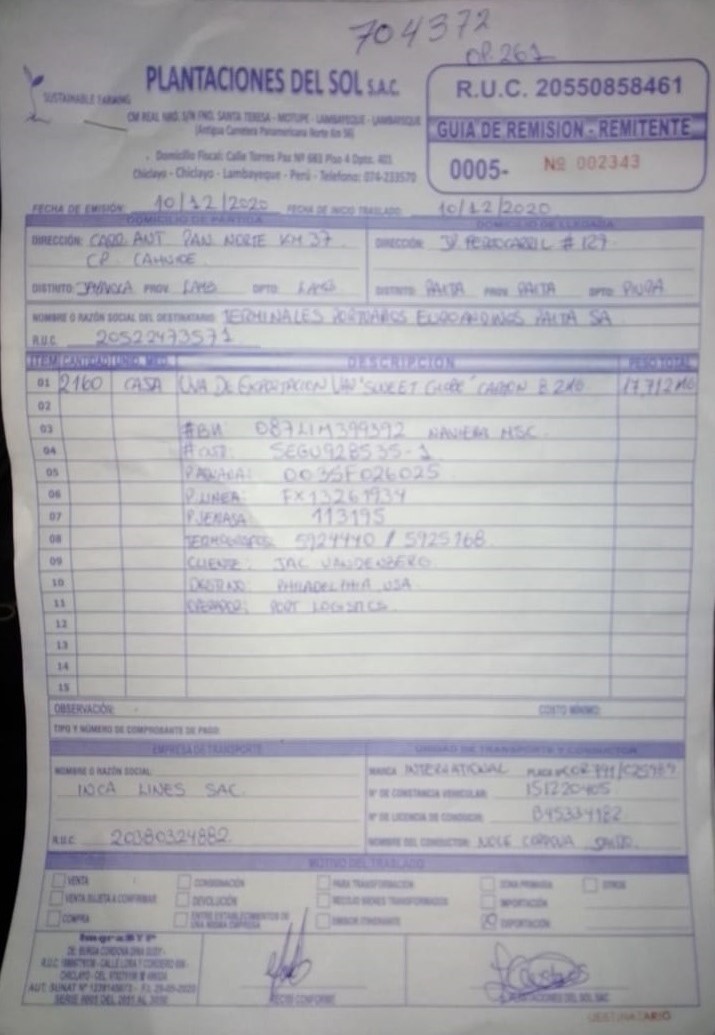 704372
OP. 261
PLANTACIONES DEL SOL S.A.C.
SUSTAINABLE FARMING
CAR REAL NRO. S/N FND. SANTA TERESA - MOTUPE - LAMBAYEQUE - LAMBAYEQUE
(Antigua Carretera Panamericana Norte Km 56)
Domicilio Fiscal: Calle Torres Paz Nº 683 Piso 4 Dpto. 401
Chiclayo - Chiclayo - Lambayeque - Perú - Telefono: 074-233570
R.U.C. 20550858461
GUIA DE REMISION - REMITENTE
0005- Nº 002343
FECHA DE EMISIÓN: 10/12/2020 FECHA DE INICIO TRASLADO: 10/12/2020
DOMICILIO DE PARTIDA DOMICILIO DE LLEGADA
DIRECCIÓN: CARR. ANT. PAN. NORTE KM 37 DIRECCIÓN: JR FERROCARRIL # 127
CP.
DISTRITO: PROV. LAMB DPTO: LAMB DISTRITO: PAITA PROV PAITA DPTO: PIURA
NOMBRE O RAZÓN SOCIAL DEL DESTINATARIO: TERMINALES PORTUARIOS EUROANDINOS PAITA SA
R.U.C. 20522473571
ITEM CANTIDAD UNID. MED. DESCRIPCION PESO TOTAL
01 2160 CAJA UVA DE EXPORTACION VAR "SWEET GLOBE" CARTON 8.2
02
03 #BK: 087LIM399392 NAVIERA MSC.
04 SEGU928535-1
05 P. ADUANA: 003SF026025
06 P. LINEA: FX13261934
07 P. SENASA: 113195
08 TERMOGRAFOS: 5924440 / 5925168
09 CLIENTE: JAC VANDENBERG
10 DESTINO: PHILADELPHIA, USA.
11 OPERADOR: PORT LOGISTICS
12
13
14
15
OBSERVACIÓN: COSTO MÍNIMO:
TIPO Y NÚMERO DE COMPROBANTE DE PAGO:
EMPRESA DE TRANSPORTE UNIDAD DE TRANSPORTE Y CONDUCTOR
NOMBRE O RAZÓN SOCIAL: MARCA INTERNATIONAL PLACA Nº
INCA LINES SAC. Nº DE CONSTANCIA VEHICULAR: 151220405
Nº DE LICENCIA DE CONDUCIR B45334182
R.U.C. 20380324882 NOMBRE DEL CONDUCTOR:
MOTIVO DEL TRASLADO
VENTA CONSIGNACIÓN PARA TRANSFORMACIÓN ZONA PRIMARIA OTROS
VENTA SUJETA A CONFIRMAR DEVOLUCIÓN RECOJO BIENES TRANSFORMADOS IMPORTACIÓN
COMPRA ENTRE ESTABLECIMIENTOS DE UNA MISMA EMPRESA EMISOR ITINERANTE EXPORTACIÓN
RECIBI CONFORME
PLANTACIONES DEL SOL SAC.
DESTINATARIO